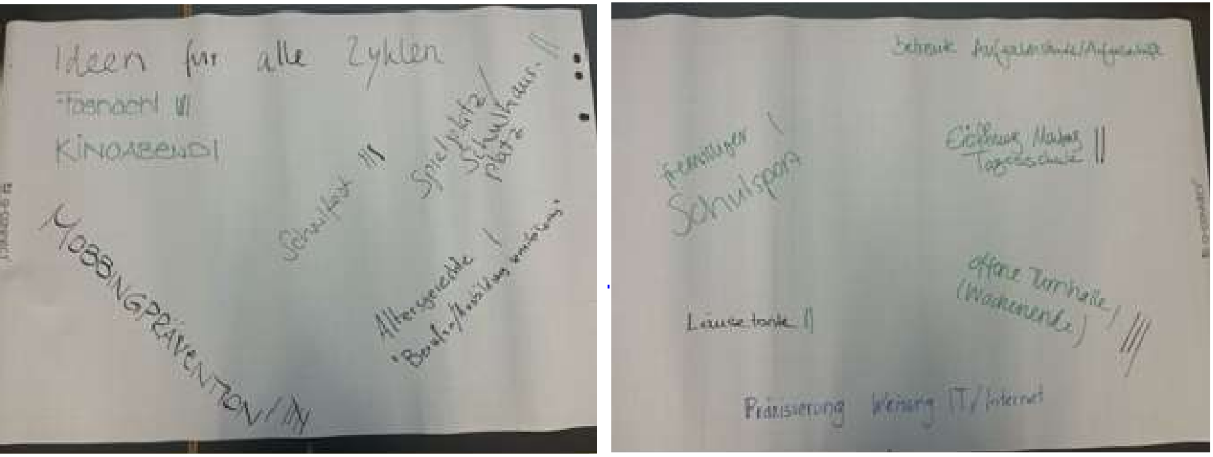 Ideen für alle Zyklen
Fasnacht |||
KINOABEND |
Spielplatz/ ||
Schulhaus-
platz
Schulfest |||
MOBBINGPRÄVENTION
Altersgerechte |
"Berufs-/Ausbildung
betreute Aufgabenstunde/Aufgabenhilfe
freiwilliger |
Schulsport
Eröffnung Montag ||
Tagesschule
offene Turnhalle
(Wochenende) |||
Läusetante ||
Präzisierung Weisung IT/Internet